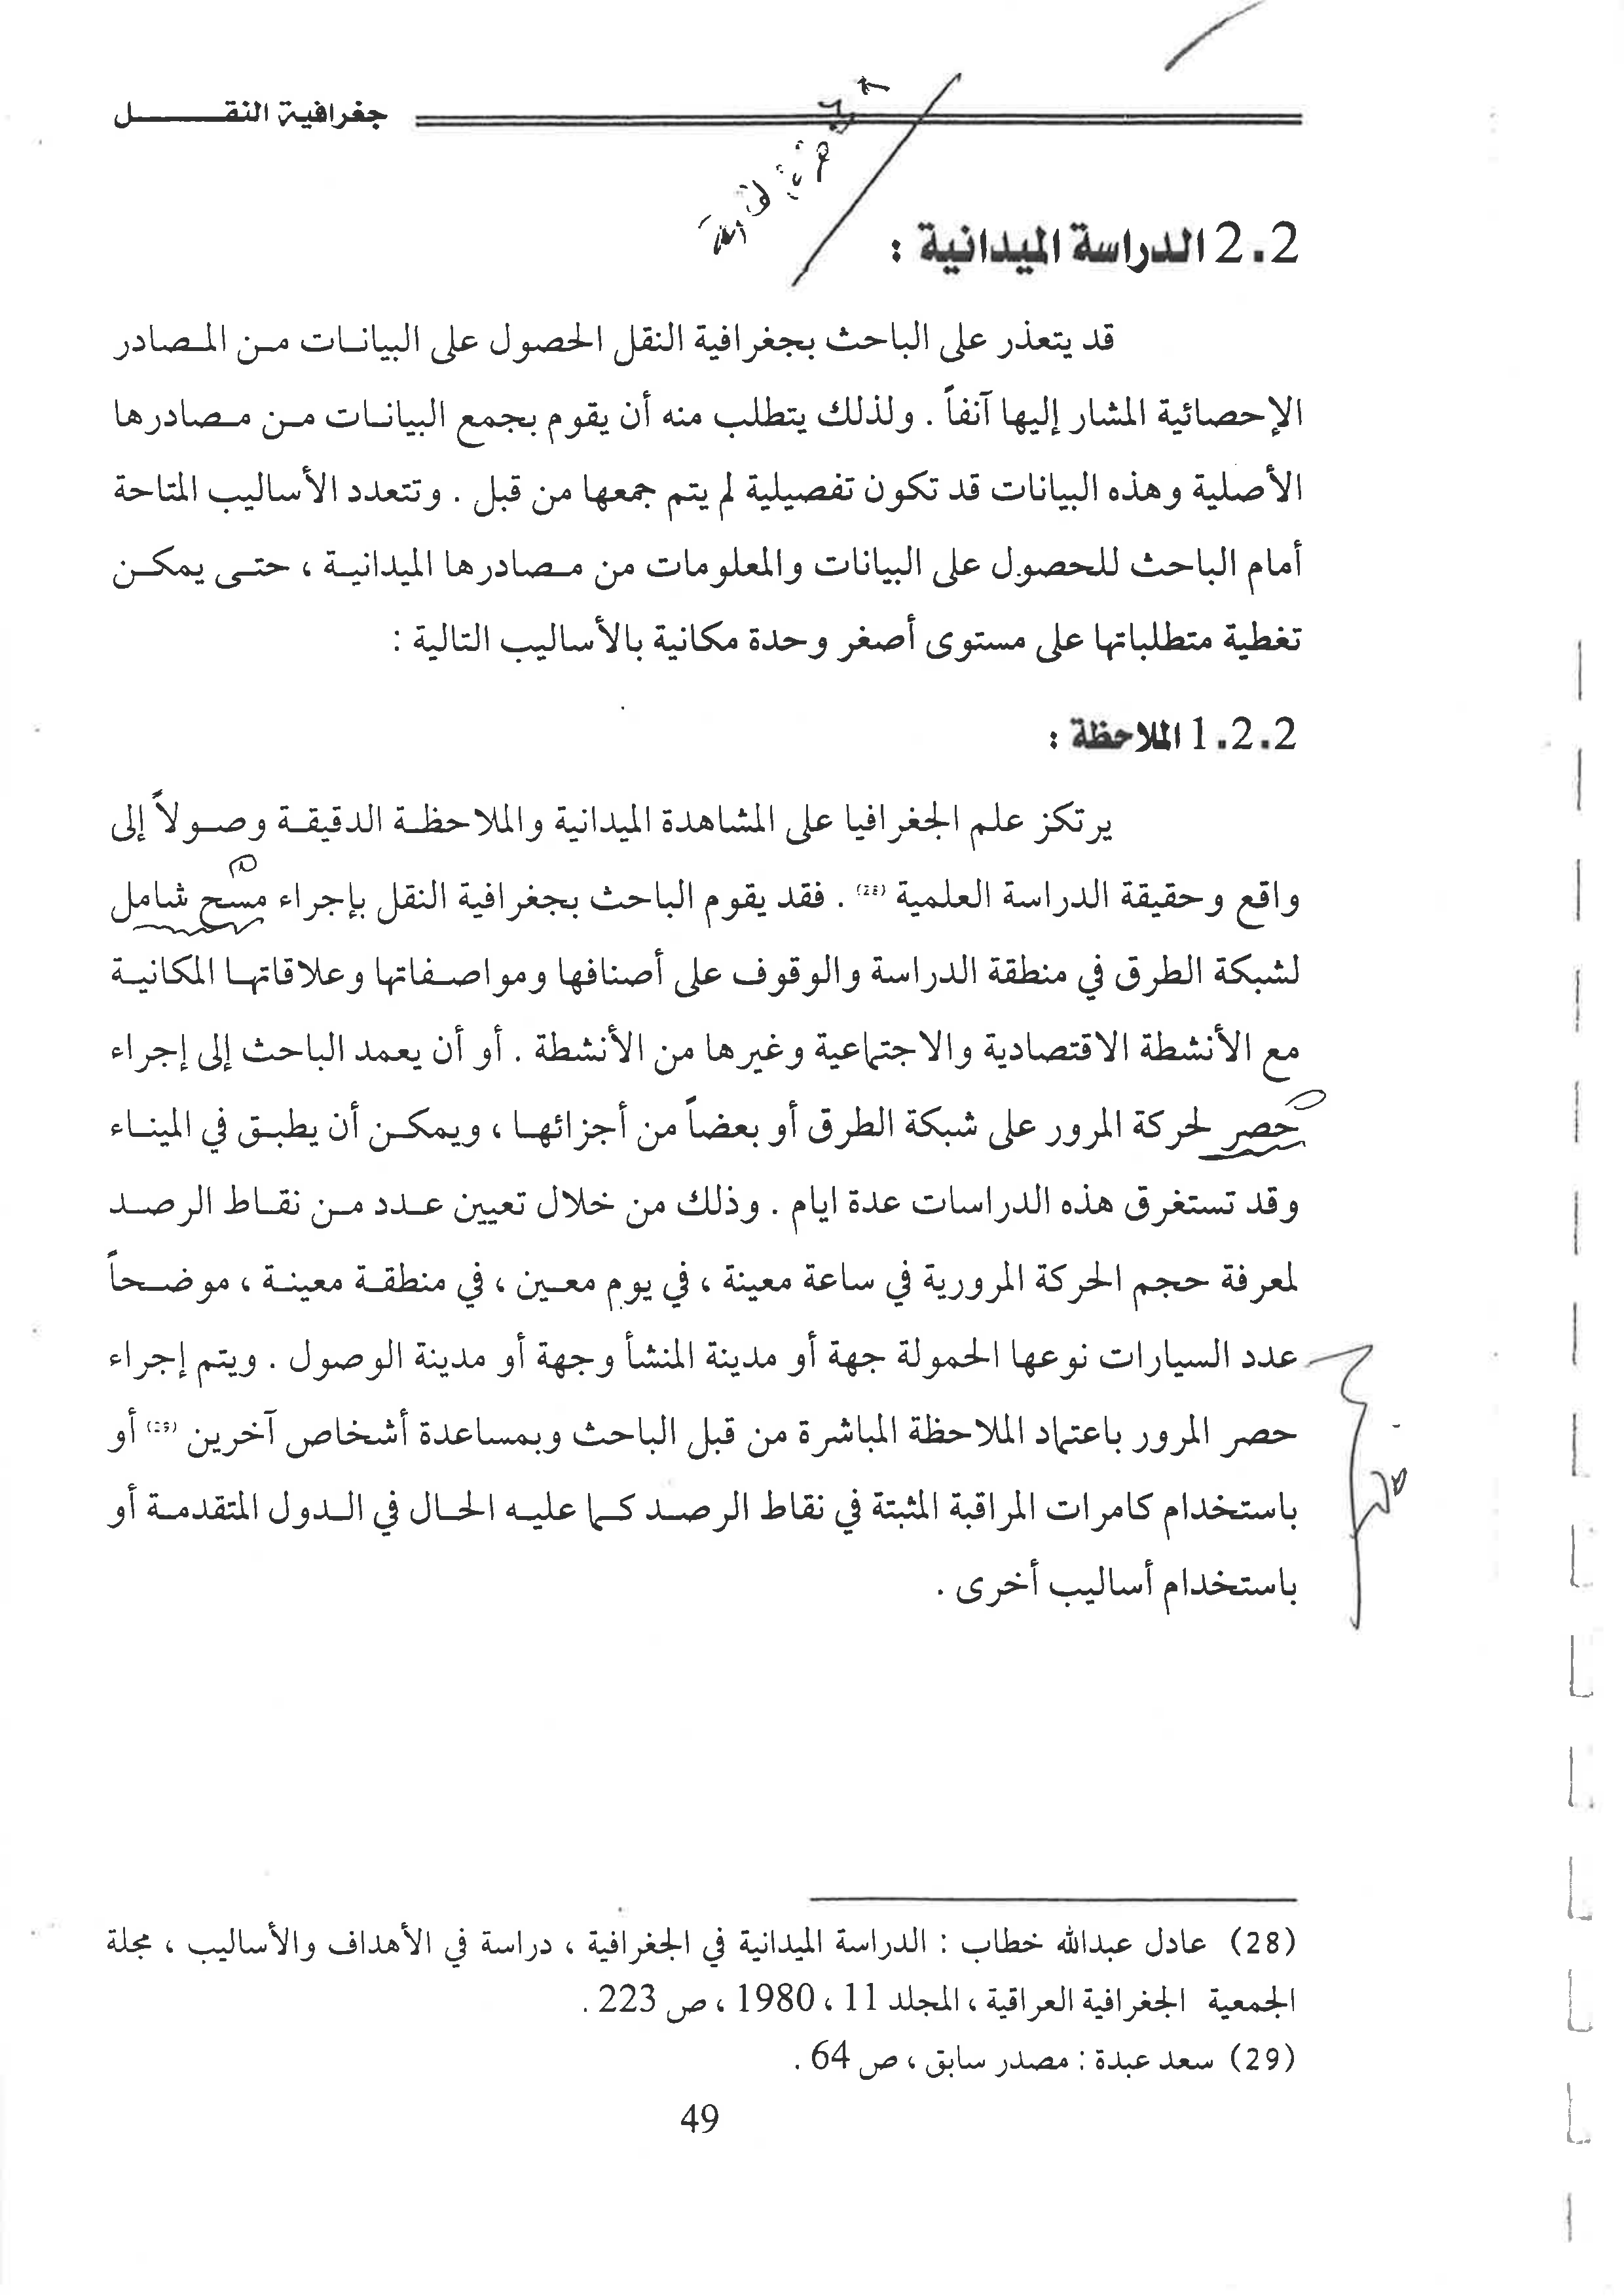 جغرافية النقل
2.2 الدراسة الميدانية :
قد يتعذر على الباحث بجغرافية النقل الحصول على البيانات من المصادر
الإحصائية المشار إليها آنفاً . ولذلك يتطلب منه أن يقوم بجمع البيانات من مصادرها
الأصلية وهذه البيانات قد تكون تفصيلية لم يتم جمعها من قبل . وتتعدد الأساليب المتاحة
أمام الباحث للحصول على البيانات والمعلومات من مصادرها الميدانية ، حتى يمكن
تغطية متطلباتها على مستوى أصغر وحدة مكانية بالأساليب التالية :
1.2.2 الملاحظة :
يرتكز علم الجغرافيا على المشاهدة الميدانية والملاحظة الدقيقة وصولاً إلى
واقع وحقيقة الدراسة العلمية (28) . فقد يقوم الباحث بجغرافية النقل بإجراء مسح شامل
لشبكة الطرق في منطقة الدراسة والوقوف على أصنافها ومواصفاتها وعلاقاتها المكانية
مع الأنشطة الاقتصادية والاجتماعية وغيرها من الأنشطة . أو أن يعمد الباحث إلى إجراء
حصر لحركة المرور على شبكة الطرق أو بعضاً من أجزائها ، ويمكن أن يطبق في الميناء
وقد تستغرق هذه الدراسات عدة ايام . وذلك من خلال تعيين عدد من نقاط الرصد
لمعرفة حجم الحركة المرورية في ساعة معينة ، في يوم معين ، في منطقة معينة ، موضحاً
عدد السيارات نوعها الحمولة جهة أو مدينة المنشأ وجهة أو مدينة الوصول . ويتم إجراء
حصر المرور باعتماد الملاحظة المباشرة من قبل الباحث وبمساعدة أشخاص آخرين (29) أو
باستخدام كامرات المراقبة المثبتة في نقاط الرصد كما عليه الحال في الدول المتقدمة أو
باستخدام أساليب أخرى .
(28) عادل عبدالله خطاب : الدراسة الميدانية في الجغرافية ، دراسة في الأهداف والأساليب ، مجلة
الجمعية الجغرافية العراقية ، المجلد 11 ، 1980 ، ص 223 .
(29) سعد عبدة : مصدر سابق ، ص 64 .
49